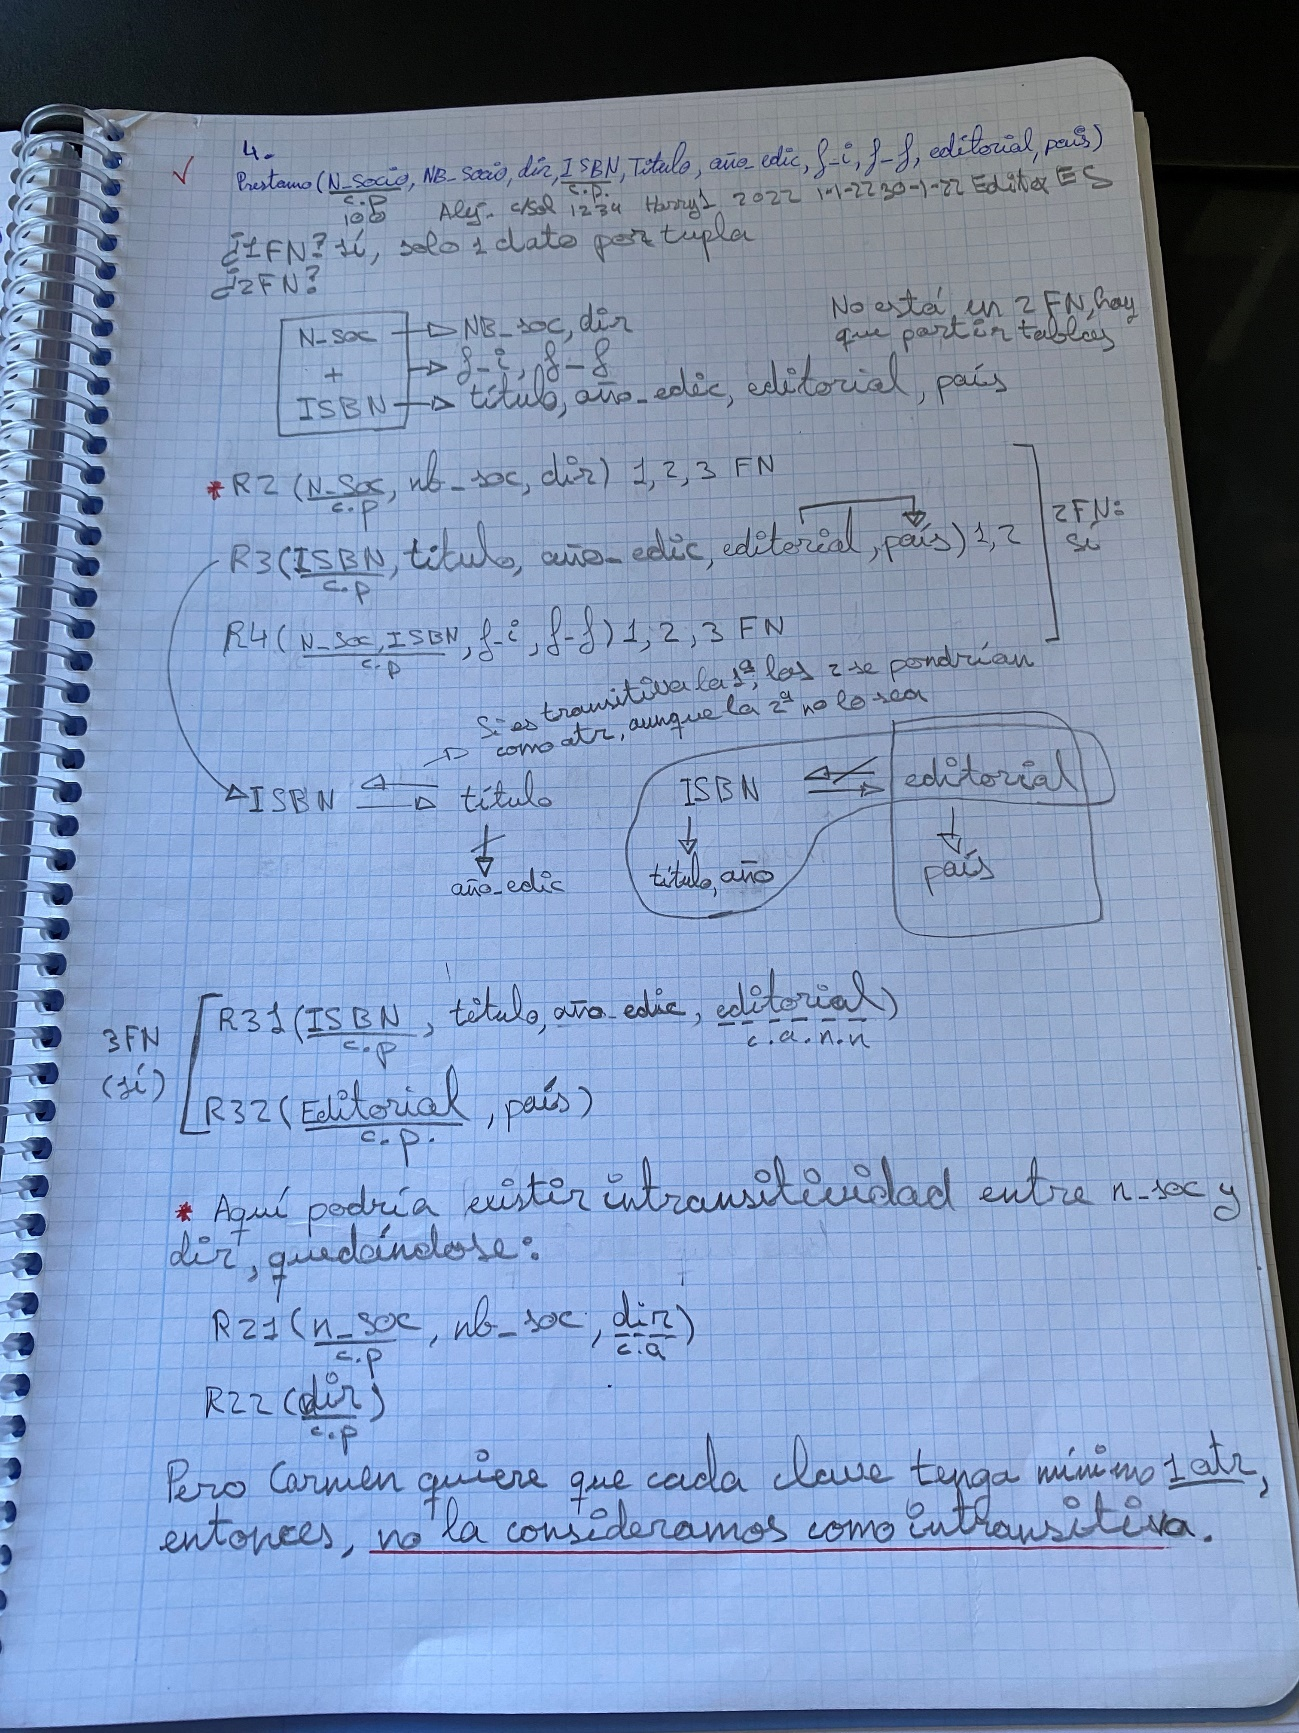 4.
Prestamo (N_Socio, NB_Socio, dir, ISBN, Título, año_edic, f-i, f-f, editorial, país)
c.p c.p.
100 Alej. c/Sol 1234 Harry1 2022 1-1-22 30-1-22 Editex ES
¿1FN? sí, solo 1 dato por tupla
¿2FN?
No está en 2FN, hay
que partir tablas
N_soc → NB_soc, dir
+ → f-i, f-f
ISBN → título, año_edic, editorial, país
* R2 (N_Soc, nb_soc, dir) 1,2,3 FN
c.p
R3 (ISBN, título, año_edic, editorial, país) 1,2
c.p
2FN:
sí
R4 (N_Soc, ISBN, f-i, f-f) 1,2,3 FN
c.p
Si es transitiva la 1ª, las 2 se pondrían
como atr, aunque la 2ª no lo sea
ISBN título
año_edic
ISBN editorial
título, año país
3FN
(sí)
R31 (ISBN, título, año_edic, editorial)
c.p c.a.n.n
R32 (Editorial, país)
c.p.
* Aquí podría existir intransitividad entre n_soc y
dir, quedándose:
R21 (n_soc, nb_soc, dir)
c.p c.a
R22 (dir)
c.p
Pero Carmen quiere que cada clave tenga mínimo 1 atr,
entonces, no la consideramos como intransitiva.